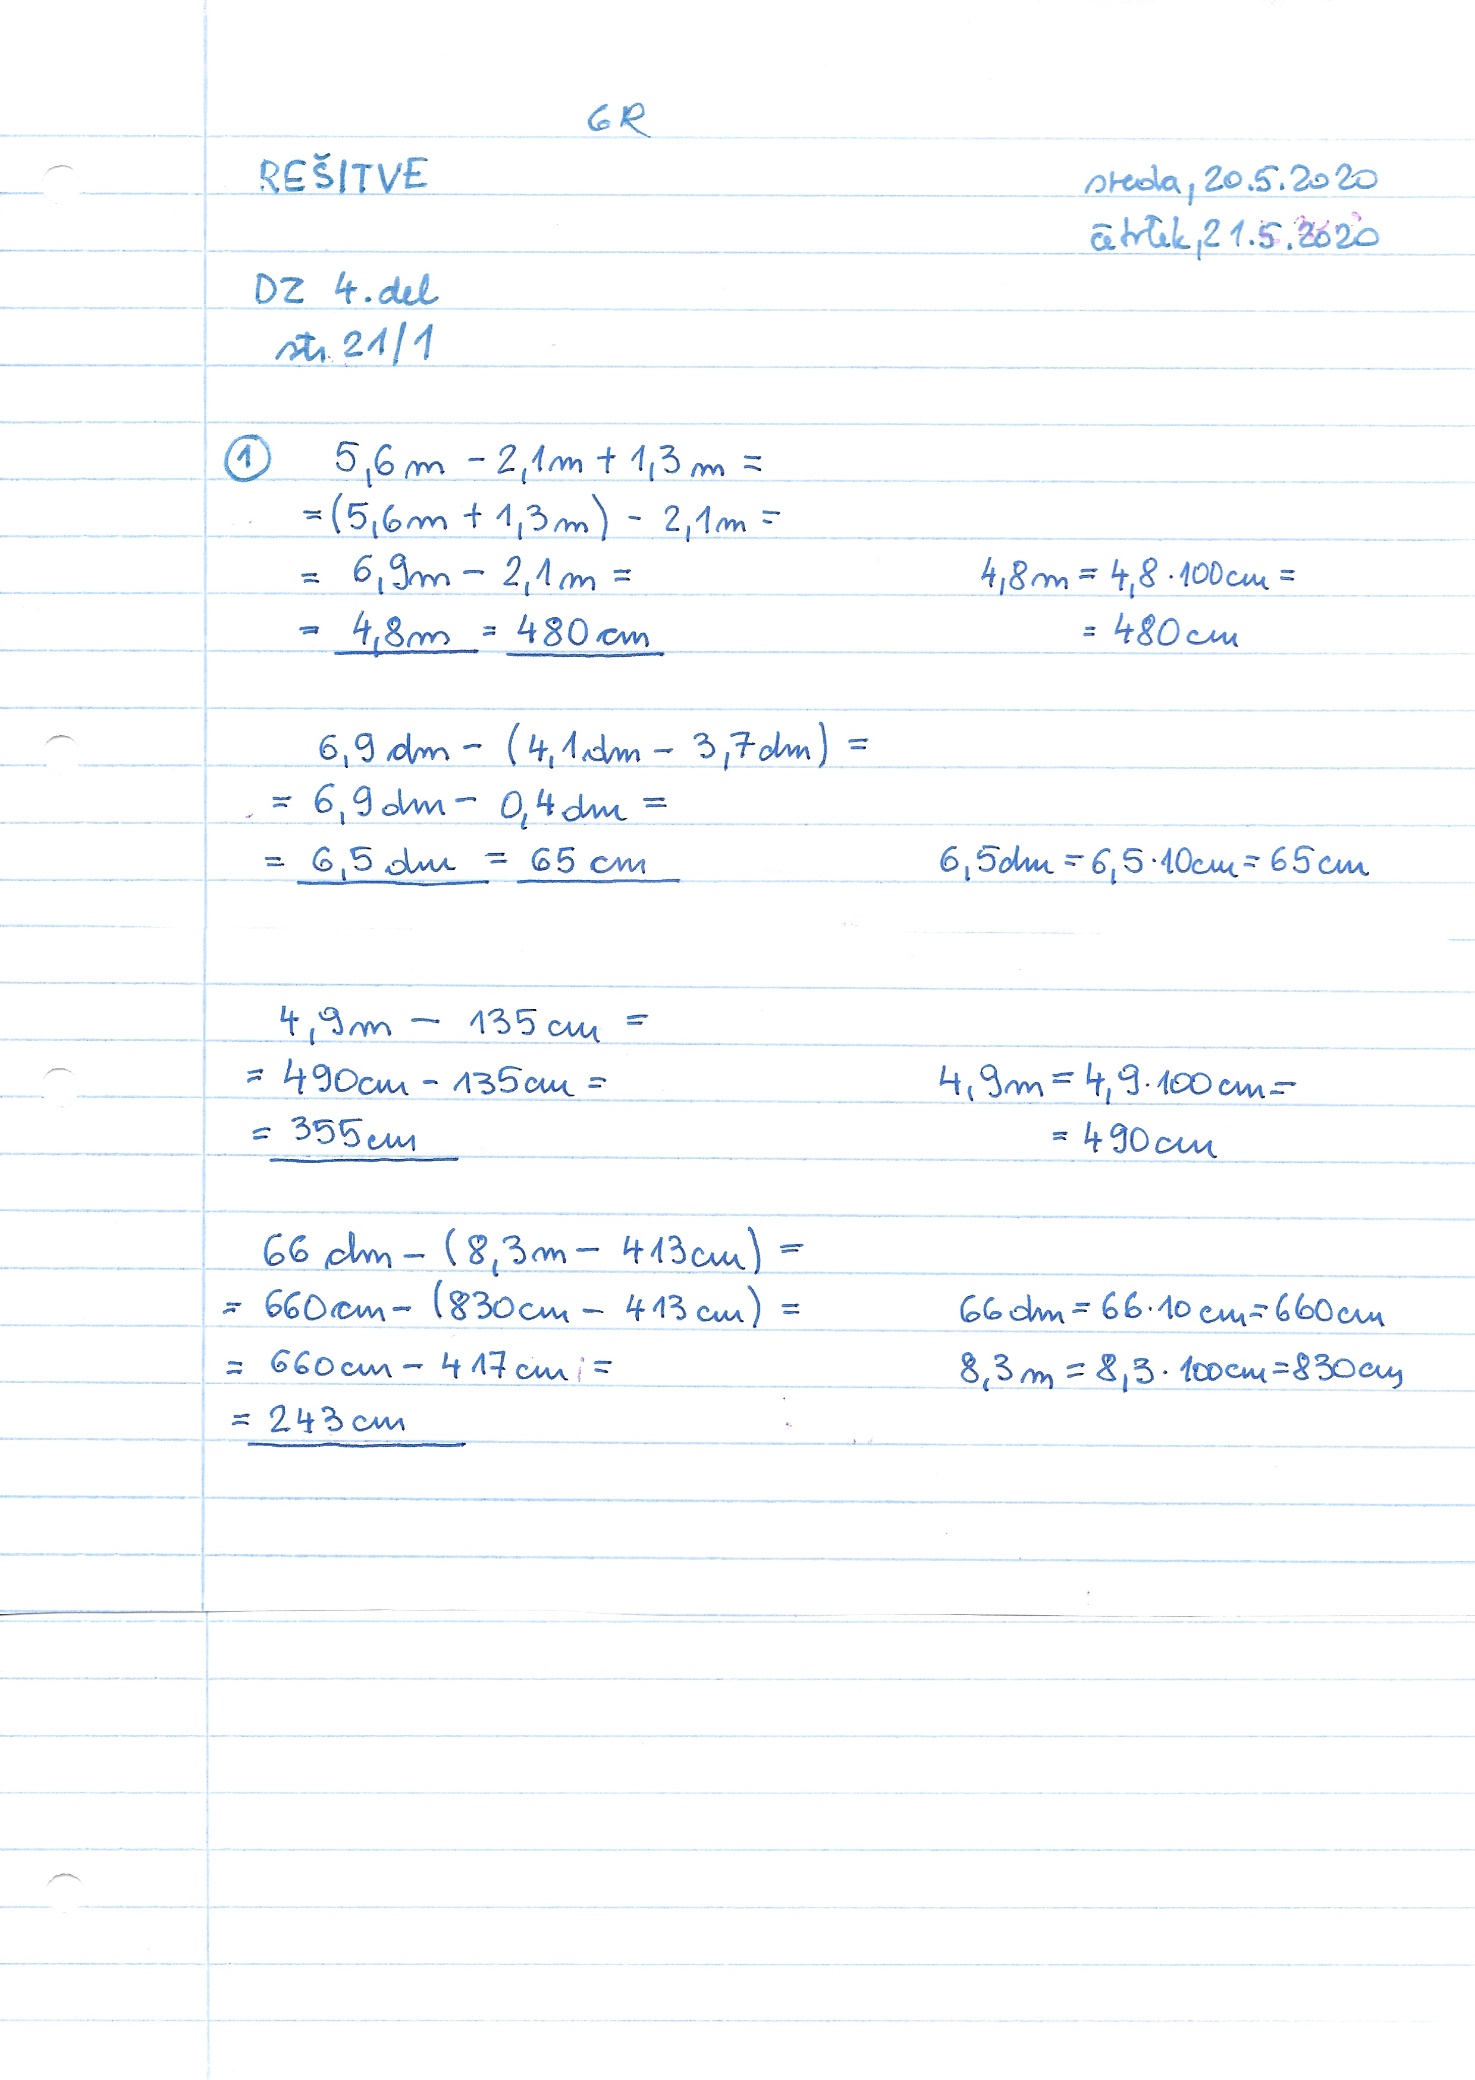 6R
REŠITVE
sreda, 20.5.2020
četrtek, 21.5.2020
DZ 4. del
str. 21/1
1 5,6m - 2,1m + 1,3m =
= (5,6m + 1,3m) - 2,1m =
= 6,9m - 2,1m = 4,8m = 4,8·100cm =
= 4,8m = 480cm = 480cm
6,9dm - (4,1dm - 3,7dm) =
= 6,9dm - 0,4dm =
= 6,5dm = 65cm 6,5dm = 6,5·10cm = 65cm
4,9m - 135cm =
= 490cm - 135cm = 4,9m = 4,9·100cm =
= 355cm = 490cm
66dm - (8,3m - 413cm) =
= 660cm - (830cm - 413cm) = 66dm = 66·10cm = 660cm
= 660cm - 417cm = 8,3m = 8,3·100cm = 830cm
= 243cm